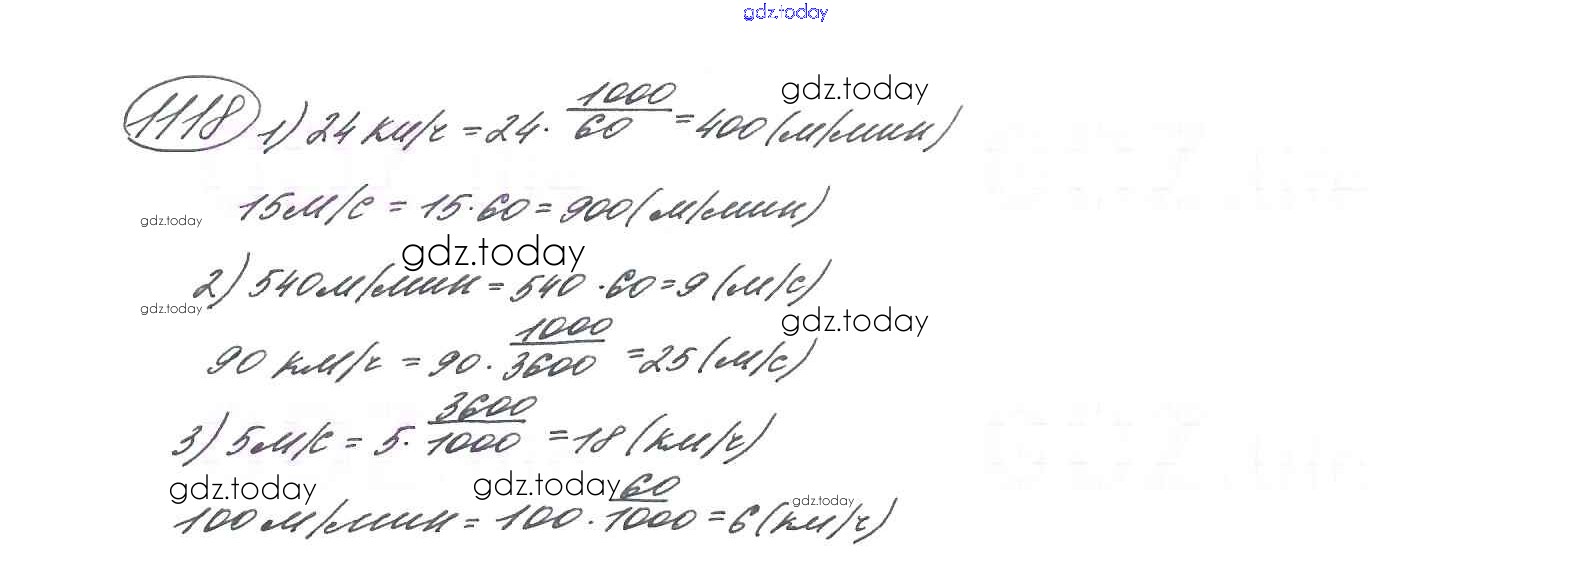 gdz.today
gdz.today
1118 1) 24 км/ч = 24 · 1000/60 = 400 (м/мин)
15 м/с = 15 · 60 = 900 (м/мин)
gdz.today
gdz.today
2) 540 м/мин = 540 · 60 = 9 (м/с)
gdz.today
gdz.today
90 км/ч = 90 · 1000/3600 = 25 (м/с)
3) 5 м/с = 5 · 3600/1000 = 18 (км/ч)
gdz.today gdz.today gdz.today
100 м/мин = 100 · 60/1000 = 6 (км/ч)